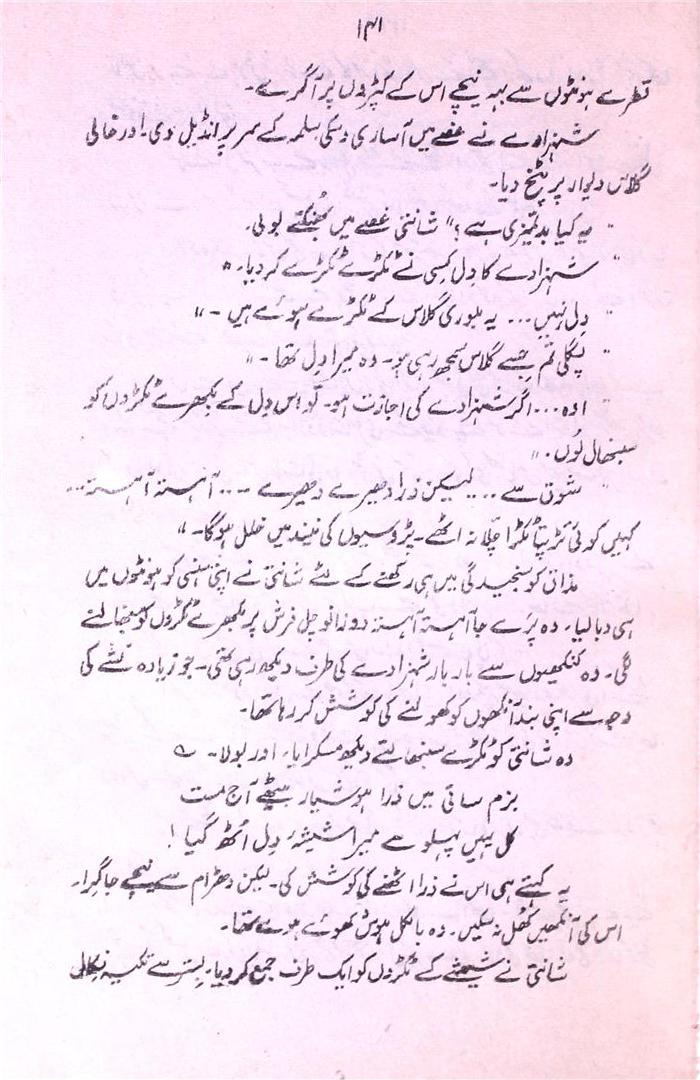 ۱۴۱
قطرے ہونٹوں سے بہہ نیچے اس کے کپڑوں پر آ گرے۔
شہزادے نے غصے میں آ ساری وسکی سلمہ کے سر پر انڈیل دی۔ اور خالی
گلاس دیوار پر پٹخ دیا۔
" یہ کیا بدتمیزی ہے؟" شانتی غصے میں بولی۔
" شہزادے کا دل کسی نے ٹکڑے ٹکڑے کر دیا۔"
" دل نہیں... یہ بلوری گلاس کے ٹکڑے ہوئے ہیں -"
" پگلی تم جسے گلاس سمجھ رہی ہو۔ وہ میرا دل تھا -"
" اوہ... اگر شہزادے کی اجازت ہو۔ تو اس دل کے بکھرے ٹکڑوں کو
سنبھال لوں۔"
" شوق سے... لیکن ذرا دھیرے دھیرے --.. آہستہ آہستہ...
کہیں کوئی تڑپتا ٹکڑا چلا نہ اٹھے۔ پڑوسیوں کی نیند میں خلل ہوگا۔"
مذاق کو سنجیدگی میں ہی رکھنے کے لئے شانتی نے اپنی ہنسی کو ہونٹوں میں
ہی دبا لیا۔ وہ پرے جا آہستہ آہستہ دو زانو چل فرش پر بکھرے ٹکڑوں کو سنبھالنے
لگی۔ وہ کنکھیوں سے بار بار شہزادے کی طرف دیکھ رہی تھی۔ جو زیادہ نشے کی
وجہ سے اپنی بند آنکھوں کو کھولنے کی کوشش کر رہا تھا۔
وہ شانتی کو ٹکڑے سنبھالتے دیکھ مسکرایا۔ اور بولا۔ ؎
بزم ساقی میں ذرا ہوشیار بیٹھے آج مست
کل یہیں پہلو سے میرا شیشۂ دل اٹھ گیا!
یہ کہتے ہی اس نے ذرا اٹھنے کی کوشش کی۔ لیکن دھڑام سے نیچے جا گرا۔
اس کی آنکھیں کھل نہ سکیں۔ وہ بالکل ہوش کھوئے ہوئے تھا۔
شانتی نے شیشے کے ٹکڑوں کو ایک طرف جمع کر دیا۔ بستر سے تکیہ نکال